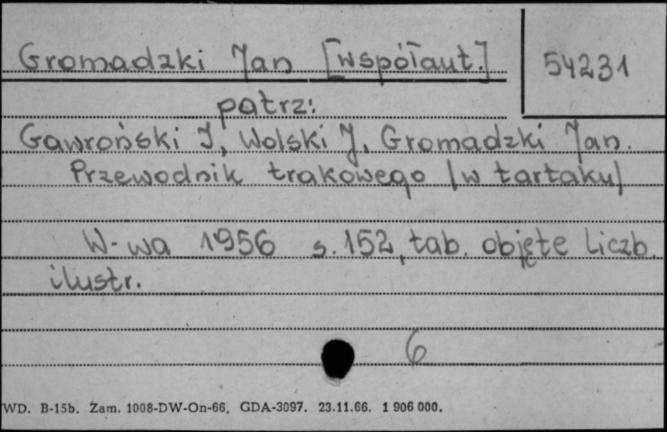 Gromadzki Jan [współaut.]
54231
patrz:
Gawroński J, Wolski J, Gromadzki Jan.
Przewodnik trakowego /w tartaku/
W-wa 1956 s. 152, tab. objęte liczb.
ilustr.
6
WD. B-15b. Zam. 1008-DW-On-66. GDA-3097. 23.11.66. 1 906 000.